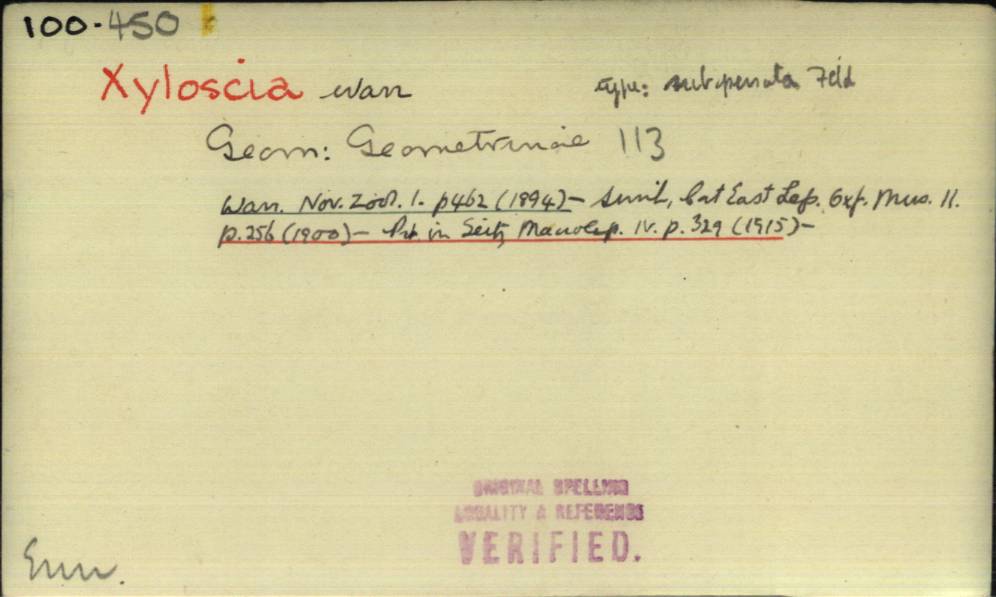 100-450
Xyloscia Warr type: subspersata Feld
Geom: Geometrinae 113
Warr. Nov. Zool. 1. p462 (1894)— Swinh, Cat East Lep. Oxf. Mus. II.
p.256 (1900)— Prt in Seitz Macrolep. IV. p. 329 (1915)—
ORIGINAL SPELLING
LOCALITY & REFERENCE
VERIFIED.